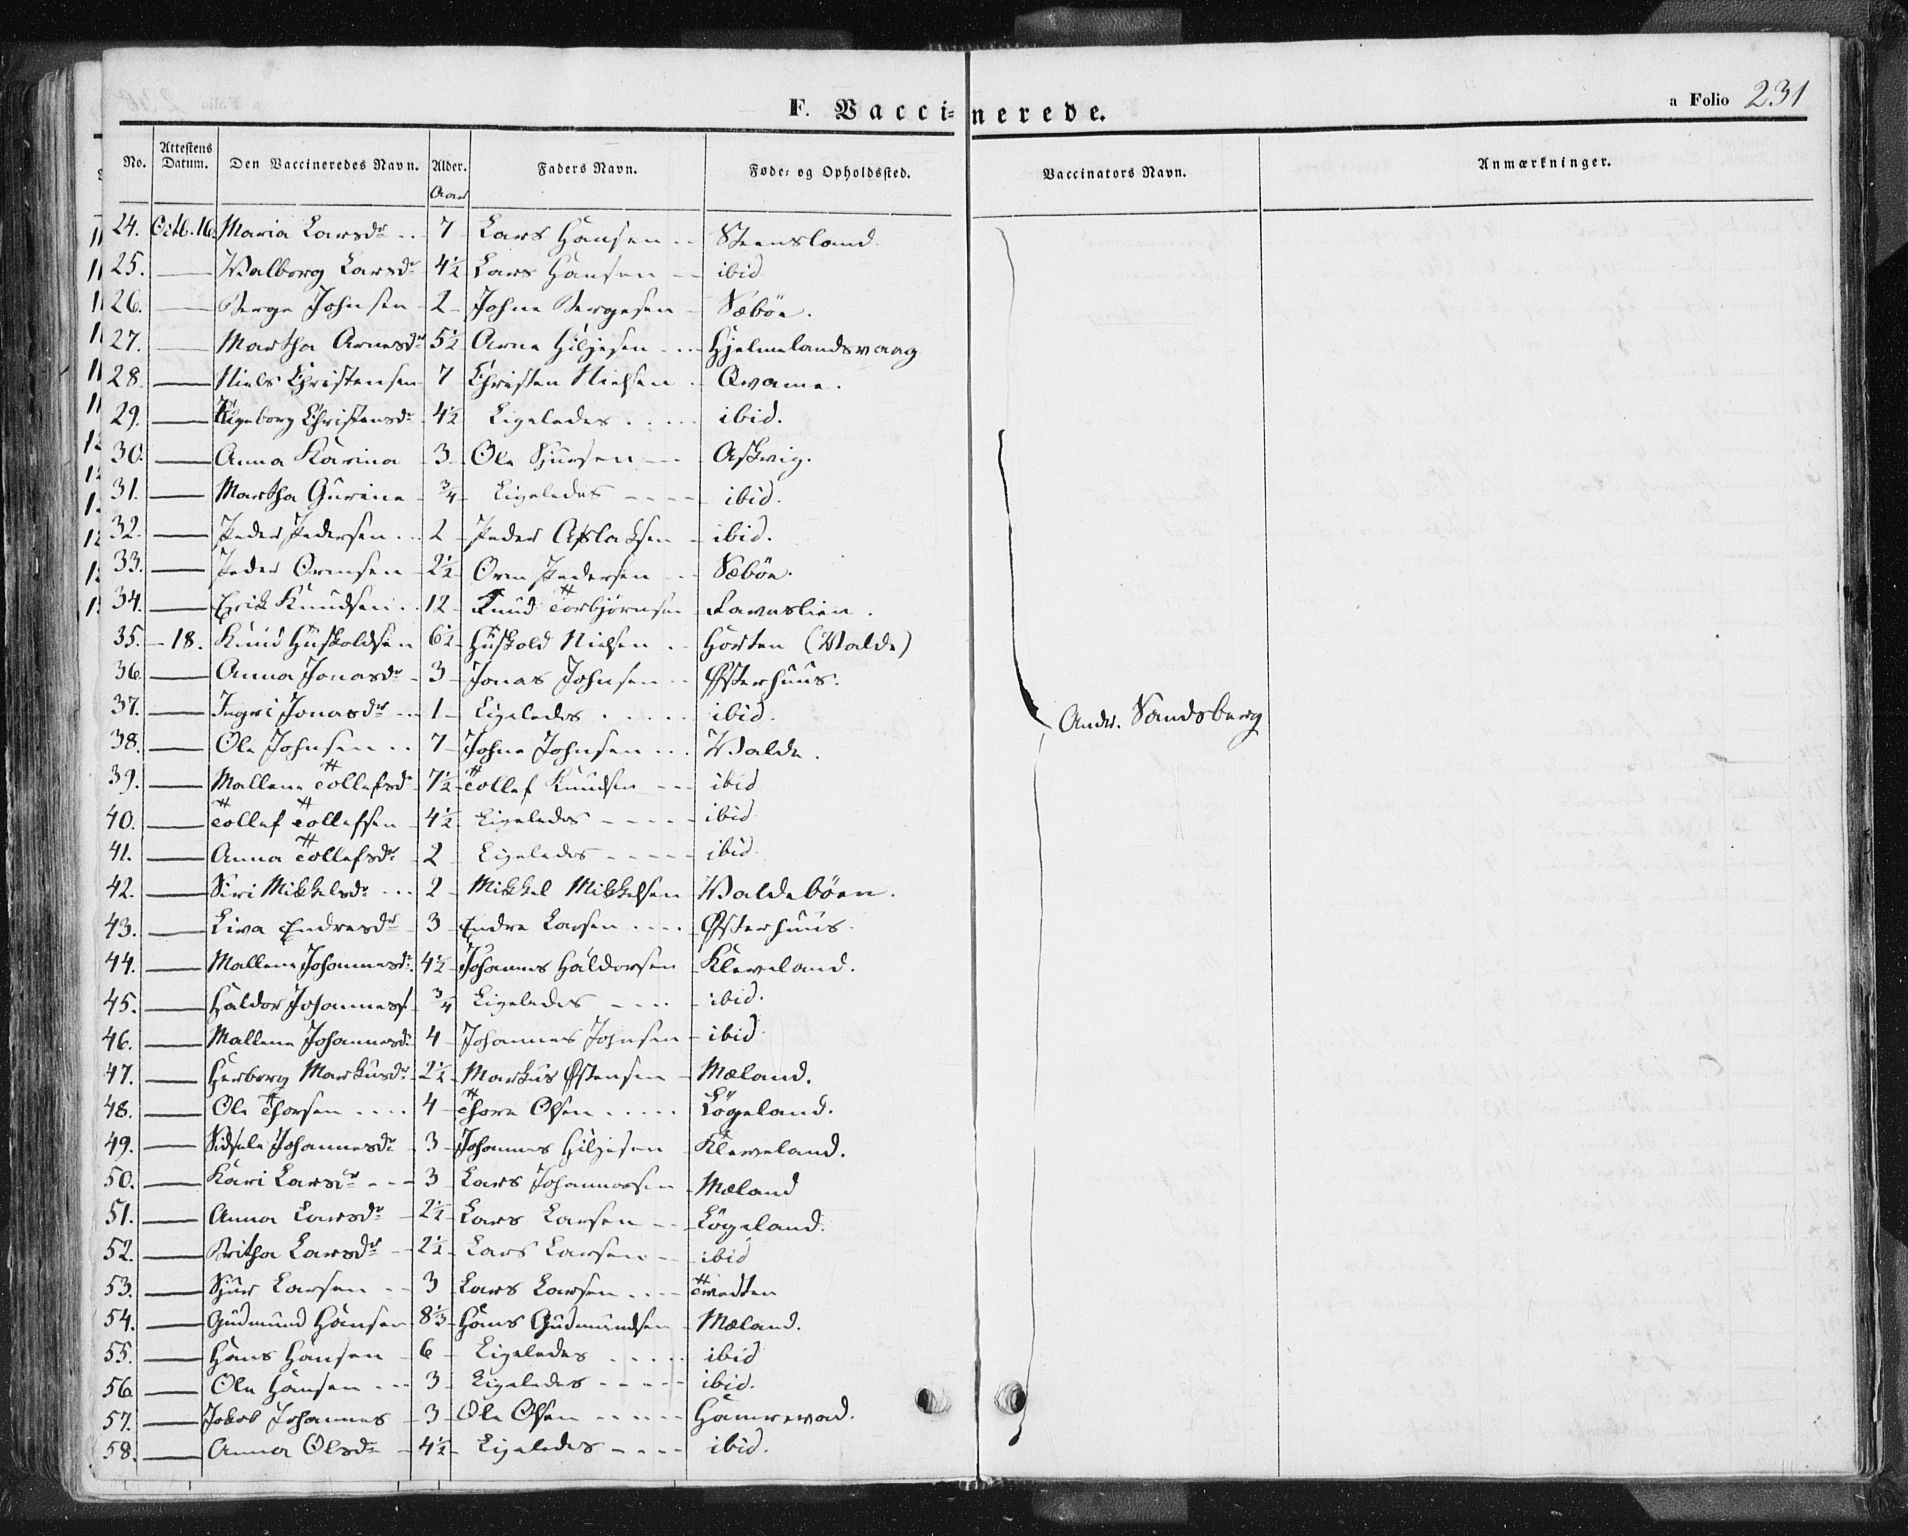 F. Vaccinerede. a Folio 231
No. Attestens Datum. Den Vaccineredes Navn. Alder. Aar Faders Navn. Føde- og Opholdssted. Vaccinators Navn. Anmærkninger.
24. Octb. 16. Maria Larsdr 7 Lars Hansen Steensland.
25. — Walborg Larsdr 4½ Lars Hansen ibid
26. — Berge Johnsen 2 Johne Bergesen Sæbøe.
27. — Martha Arnesdr 5½ Arne Hiljesen Hjelmelandsvaag
28. — Niels Christensen 7 Christen Nielsen Qvame.
29. — Ingeborg Christensdr 4½ Ligeledes ibid.
30. — Anna Karina 3 Ole Sjursen Askvig.
31. — Martha Gurine ¾ Ligeledes ibid.
32. — Peder Pedersen 2 Peder Aslaksen ibid.
33. — Peder Ormsen 2½ Orm Pedersen Sæbøe.
34. — Erik Knudsen 12 Knud Torbjørnsen
35. – 18. Knud Huskoldsen 6½ Huskold Nielsen Horten (Walde)
36. — Anna Jonasdr 3 Jonas Johnsen Østerhuus.
37. — Ingri Jonasdr 1 Ligeledes ibid.
38. — Ole Johnsen 7 Johne Johnsen Walde.
Andr. Sandsberg
39. — Mallene Tollefsd 7½ Tollef Knudsen ibid
40. — Tollef Tollefsen 4½ Ligeledes ibid
41. — Anna Tollefsdr 2 Ligeledes ibid
42. — Siri Mikkelsdr 2 Mikkel Mikkelsen Waldebøen.
43. — Liva Endresdr 3 Endre Larsen Østerhuus.
44. — Mallene Johannesdr 4½ Johannes Haldorsen Kleveland.
45. — Haldor Johanness ¾ Ligeledes ibid.
46. — Mallene Johannesdr 4 Johannes Johnsen ibid
47. — Herborg Markusdr 2½ Markus Østensen Mæland.
48. — Ole Thorsen 4 Thore Olsen Løgeland.
49. — Sidsele Johannesdr 3 Johannes Hiljesen Kleveland.
50. — Kari Larsdr 3 Lars Johannessen Mæland
51. — Anna Larsdr 2½ Lars Larsen Løgeland.
52. — Britha Larsdr 2½ Lars Larsen ibid
53. — Sjur Larsen 3 Lars Larsen Tvedten
54. — Gudmund Hansen 8⅓ Hans Gudmundsen Mæland.
55. — Hans Hansen 6 Ligeledes ibid
56. — Ole Hansen 3 Ligeledes ibid.
57. — Jakob Johannes 3 Ole Olsen Hamrevad.
58. — Anna Olsdr 4½ Ligeledes ibid.